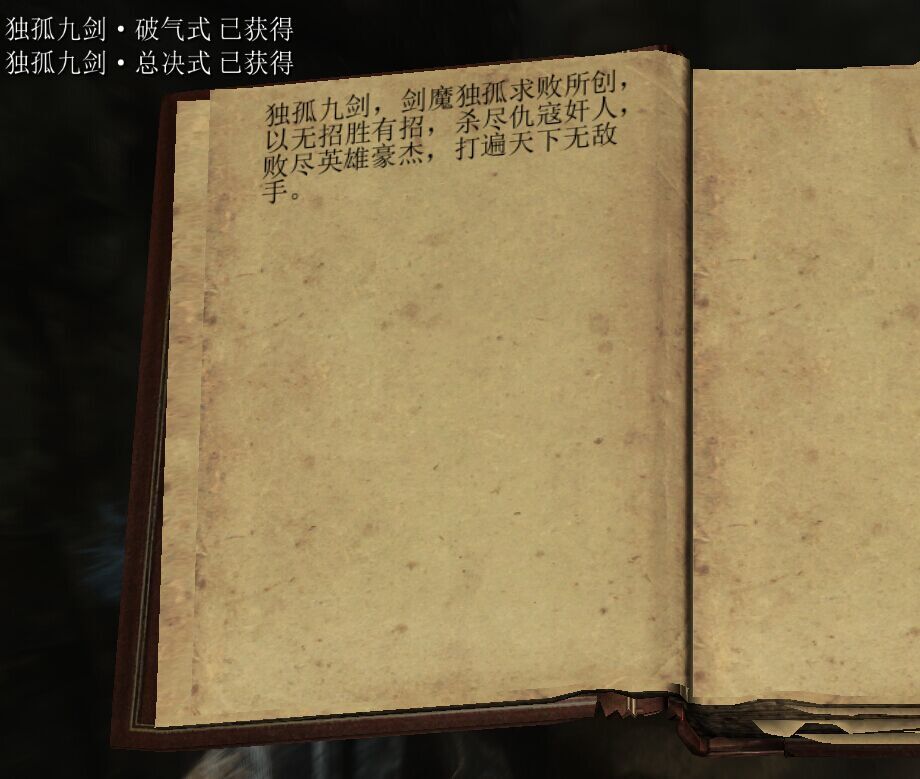 独孤九剑·破气式 已获得
独孤九剑·总决式 已获得
独孤九剑，剑魔独孤求败所创，
以无招胜有招，杀尽仇寇奸人，
败尽英雄豪杰，打遍天下无敌
手。